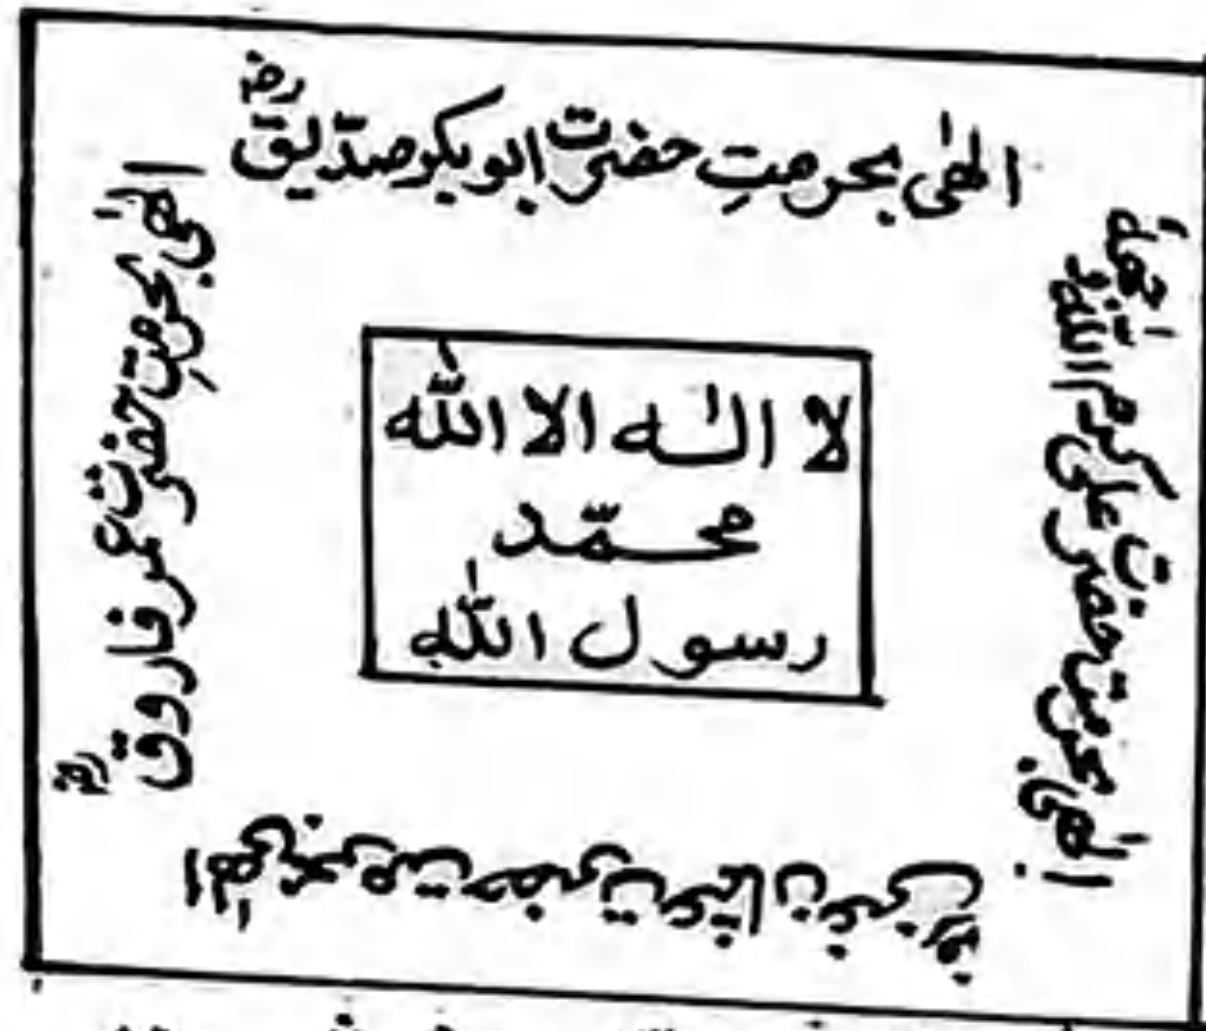 الٰھی بحرمتِ حضرت ابوبکر صدّیق رضؓ
الٰھی بحرمتِ حضرت عمر فاروق رضؓ
لا الٰہ الا اللّٰہ
محمّد
رسول اللّٰہِ
الٰھی بحرمت حضرت علی کرم اللّٰہ وجھہٗ
الٰھی بحرمت حضرت عثمان غنی رضؓ